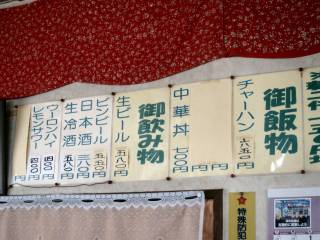 御飯物
チャーハン 六五〇円
中華丼 七〇〇円
御飲み物
生ビール 五八〇円
ビンビール 五五〇円
日本酒 三八〇円
生冷酒 五八〇円
ウーロンハイ 四〇〇円
レモンサワー 四〇〇円
特殊防犯